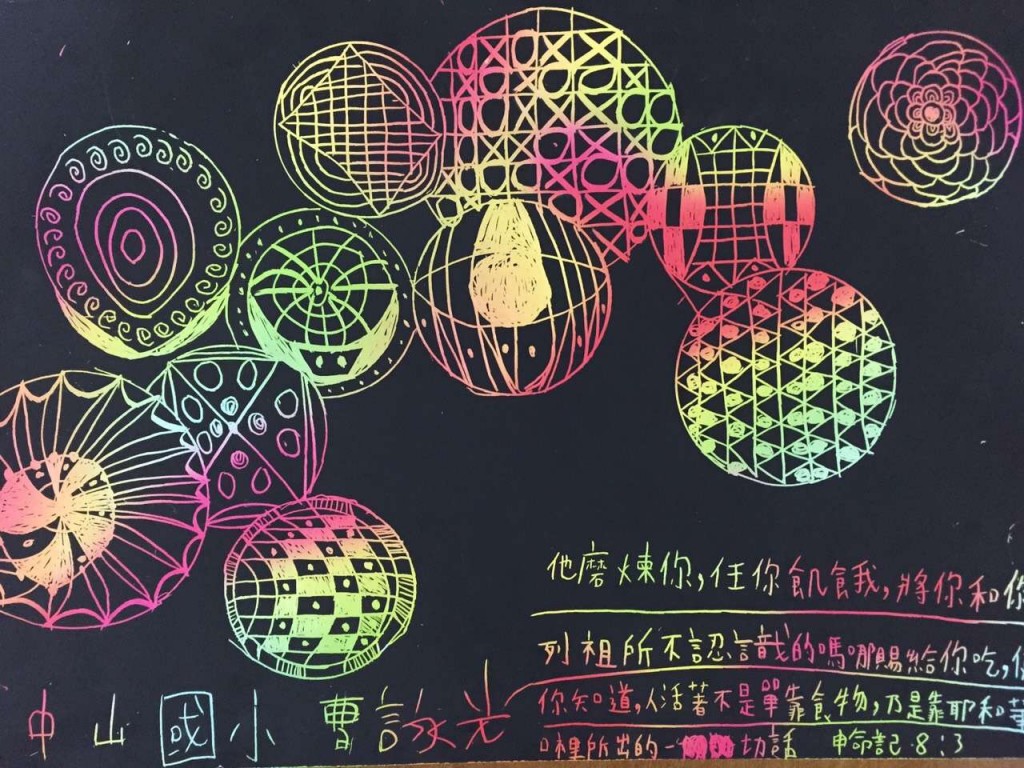 他磨煉你,任你飢餓,將你和你
列祖所不認識的嗎哪賜給你吃,
你知道,人活著不是單靠食物,乃是靠耶和華
口裡所出的一切話 申命記 8:3
中山國小 曹詠光